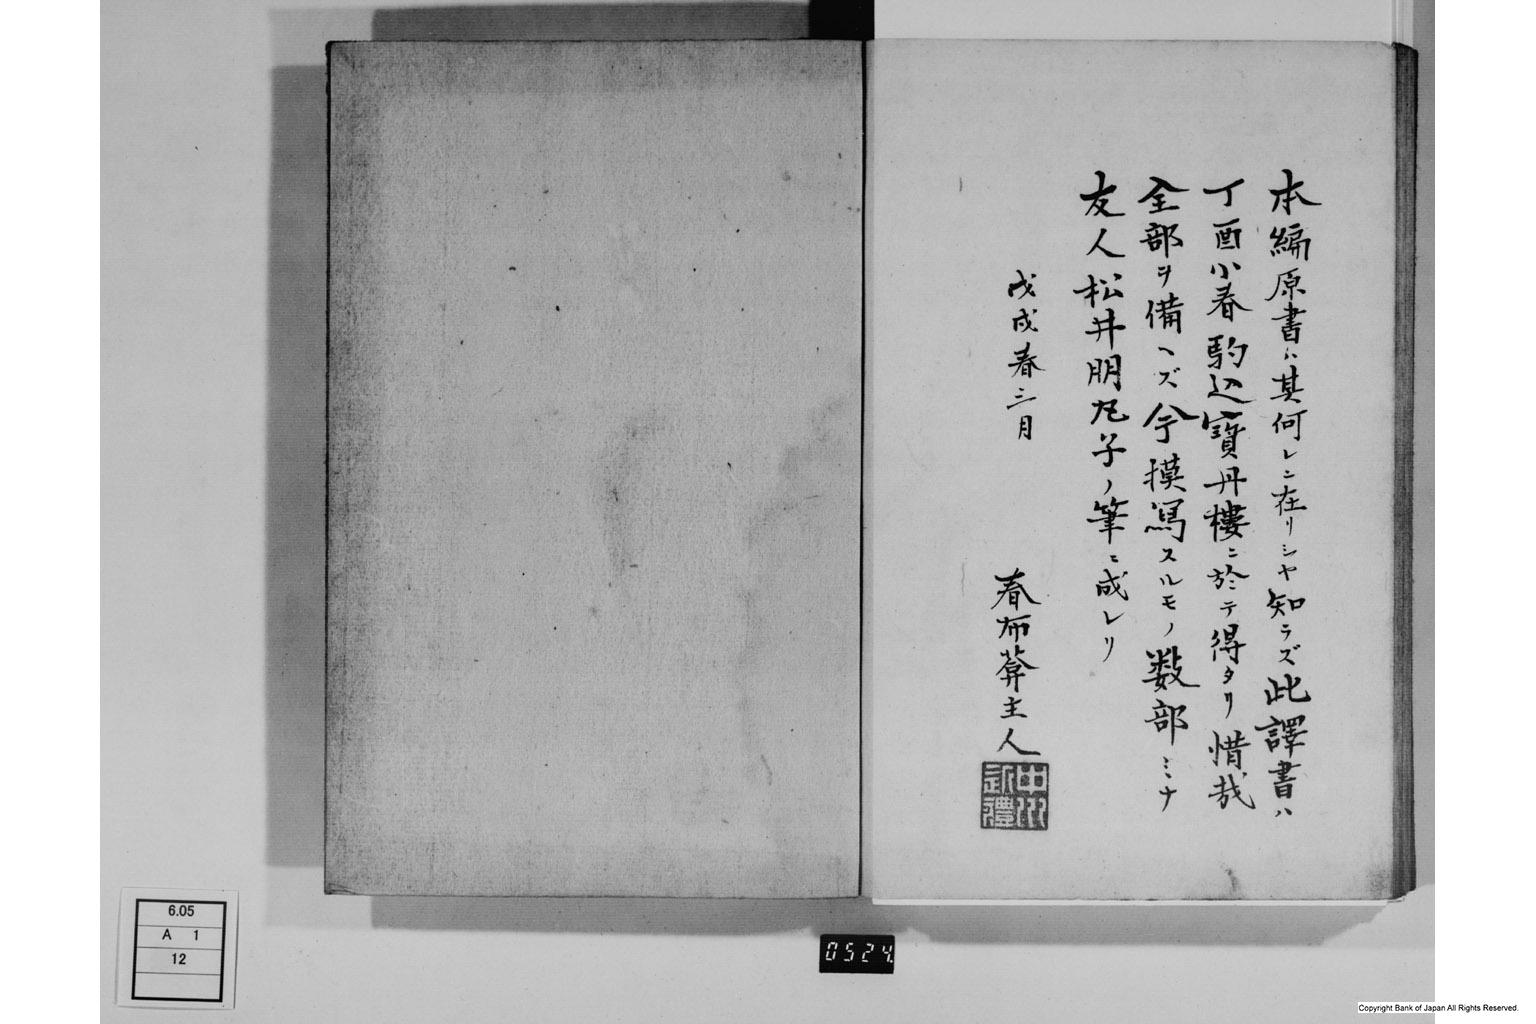 本編原書ハ其何レニ在リシヤ知ラズ此譯書ハ
丁酉小春駒込寶丹樓ニ於テ得タリ惜哉
全部ヲ備ヘズ今摸写スルモノ数部ミナ
友人松井明 子ノ筆ニ成レリ
戊戌春三月
春布 主人
中川
近禮
6.05
A 1
12
0524
Copyright Bank of Japan All Rights Reserved.